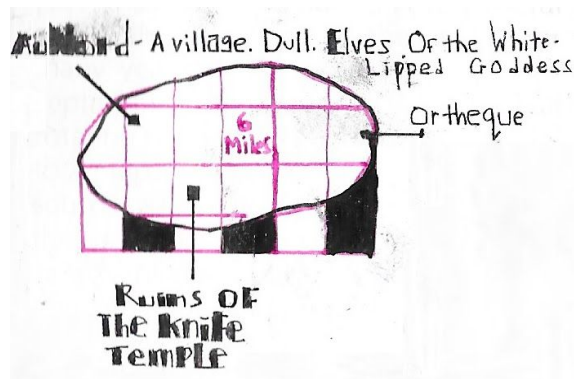 - A village. Dull. Elves Of the White-
Lipped Goddess
Ortheque
6
Miles
Ruins OF
The Knife
TEMPLE